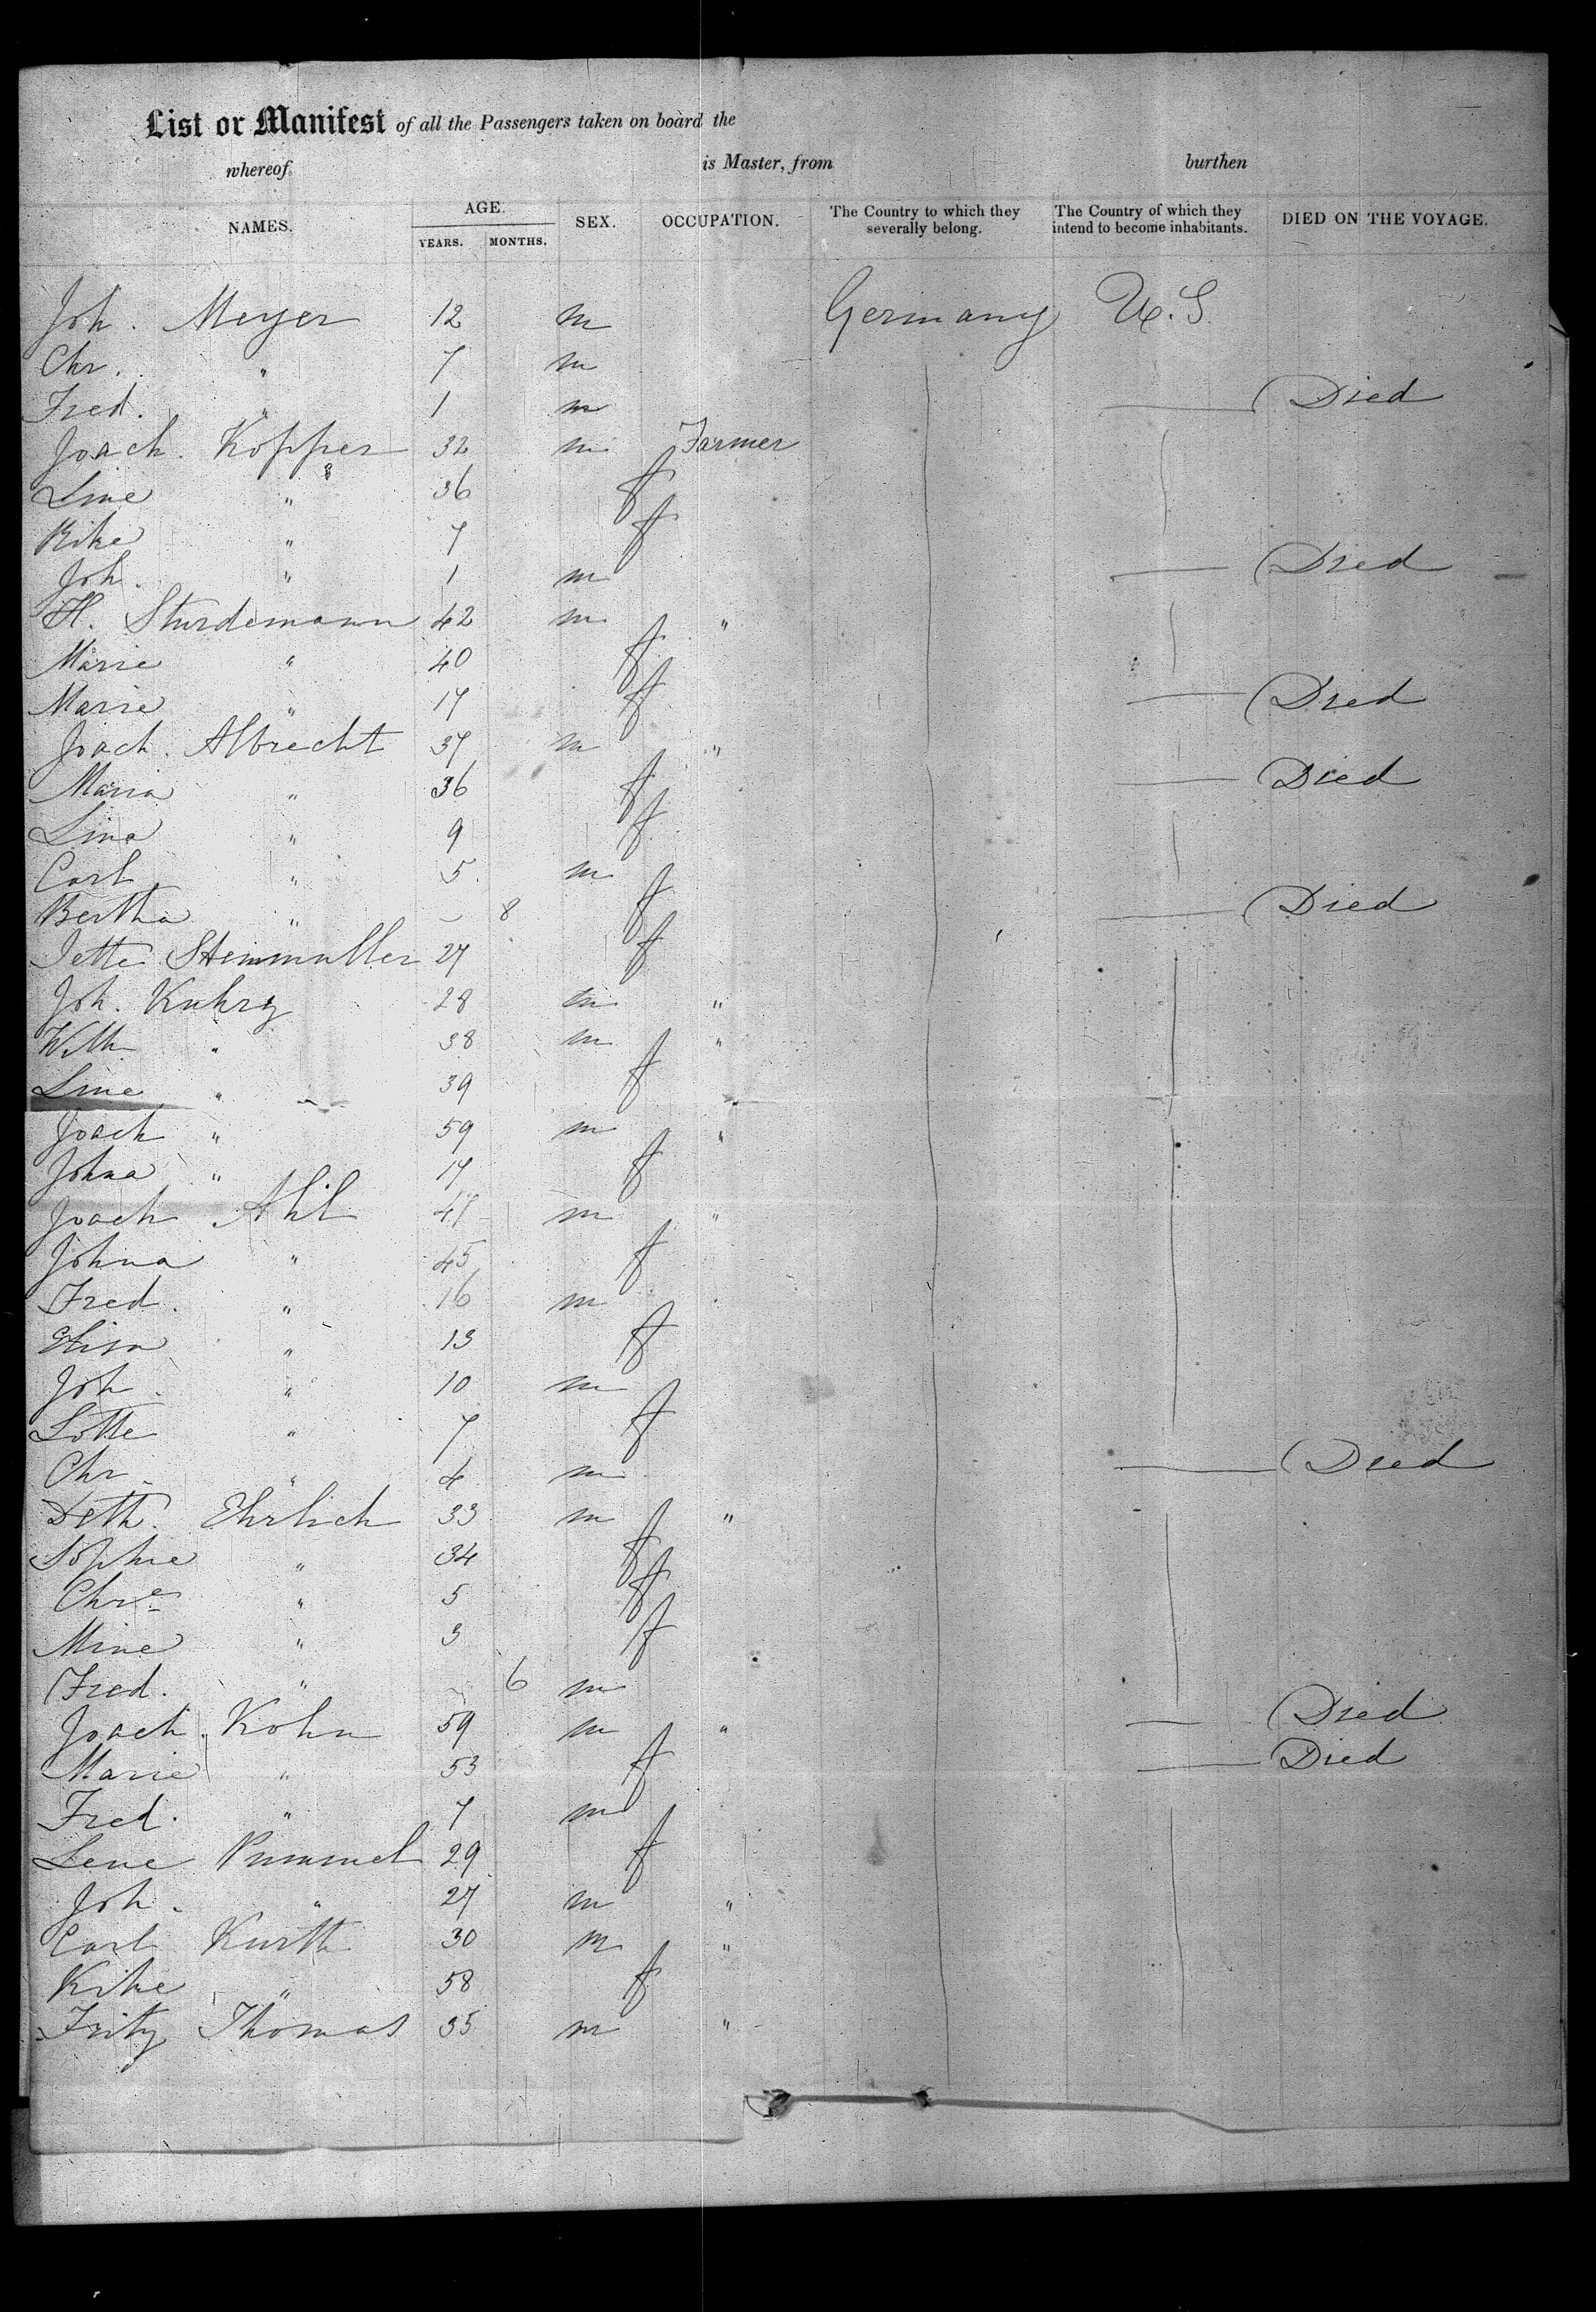 List or Manifest of all the Passengers taken on board the
whereof is Master, from burthen
NAMES. AGE. YEARS. MONTHS. SEX. OCCUPATION. The Country to which they severally belong. The Country of which they intend to become inhabitants. DIED ON THE VOYAGE.
Joh. Meyer 12 m Germany U.S.
Chr. " 7 m
Fred. " 1 m Died
Joach. Kopper 32 m Farmer
Line " 36 f
Rike " 7 f
Joh. " 1 m Died
H. Sturdemann 42 m "
Marie " 40 f
Marie " 17 f Died
Joach. Albrecht 37 m "
Maria " 36 f Died
Lina " 9 f
Carl " 5 m
Bertha " – 8 f Died
Jette Steinmuller 27 f
Joh. Kuhrz 28 m "
Wilh " 38 m "
Line " 39 f
Joach " 59 m "
Johna " 17 f
Joach Ahl 47 m "
Johna " 45 f
Fred. " 16 m
Elisa " 13 f
Joh. " 10 m
Lotte " 7 f
Chr. " 4 m Died
Deth. Ehrlich 33 m "
Sophie " 34 f
Chre " 5 f
Mine " 3 f
Fred. " – 6 m
Joach. Kohn 59 m " Died
Marie " 53 f Died
Fred. " 7 m
Lene Pummel 29 f
Joh. " 27 m "
Carl Kurth 30 m "
Rike " 58 f
Fritz Thomas 35 m "